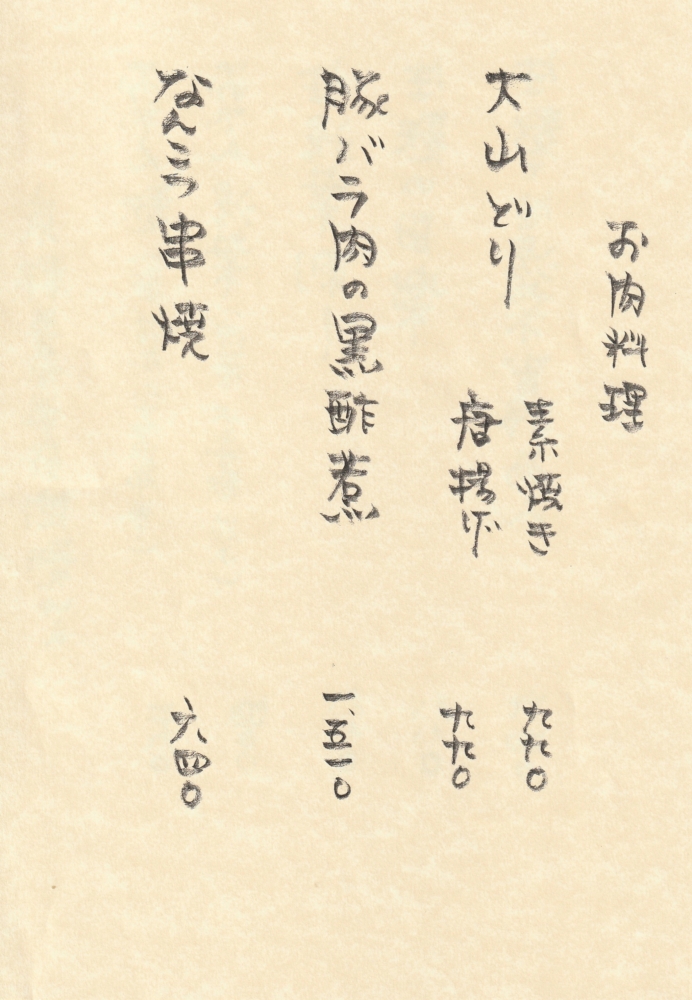 お肉料理
大山どり
素焼き 九九〇
唐揚げ 九九〇
豚バラ肉の黒酢煮 一、五一〇
なんこつ串焼 六四〇